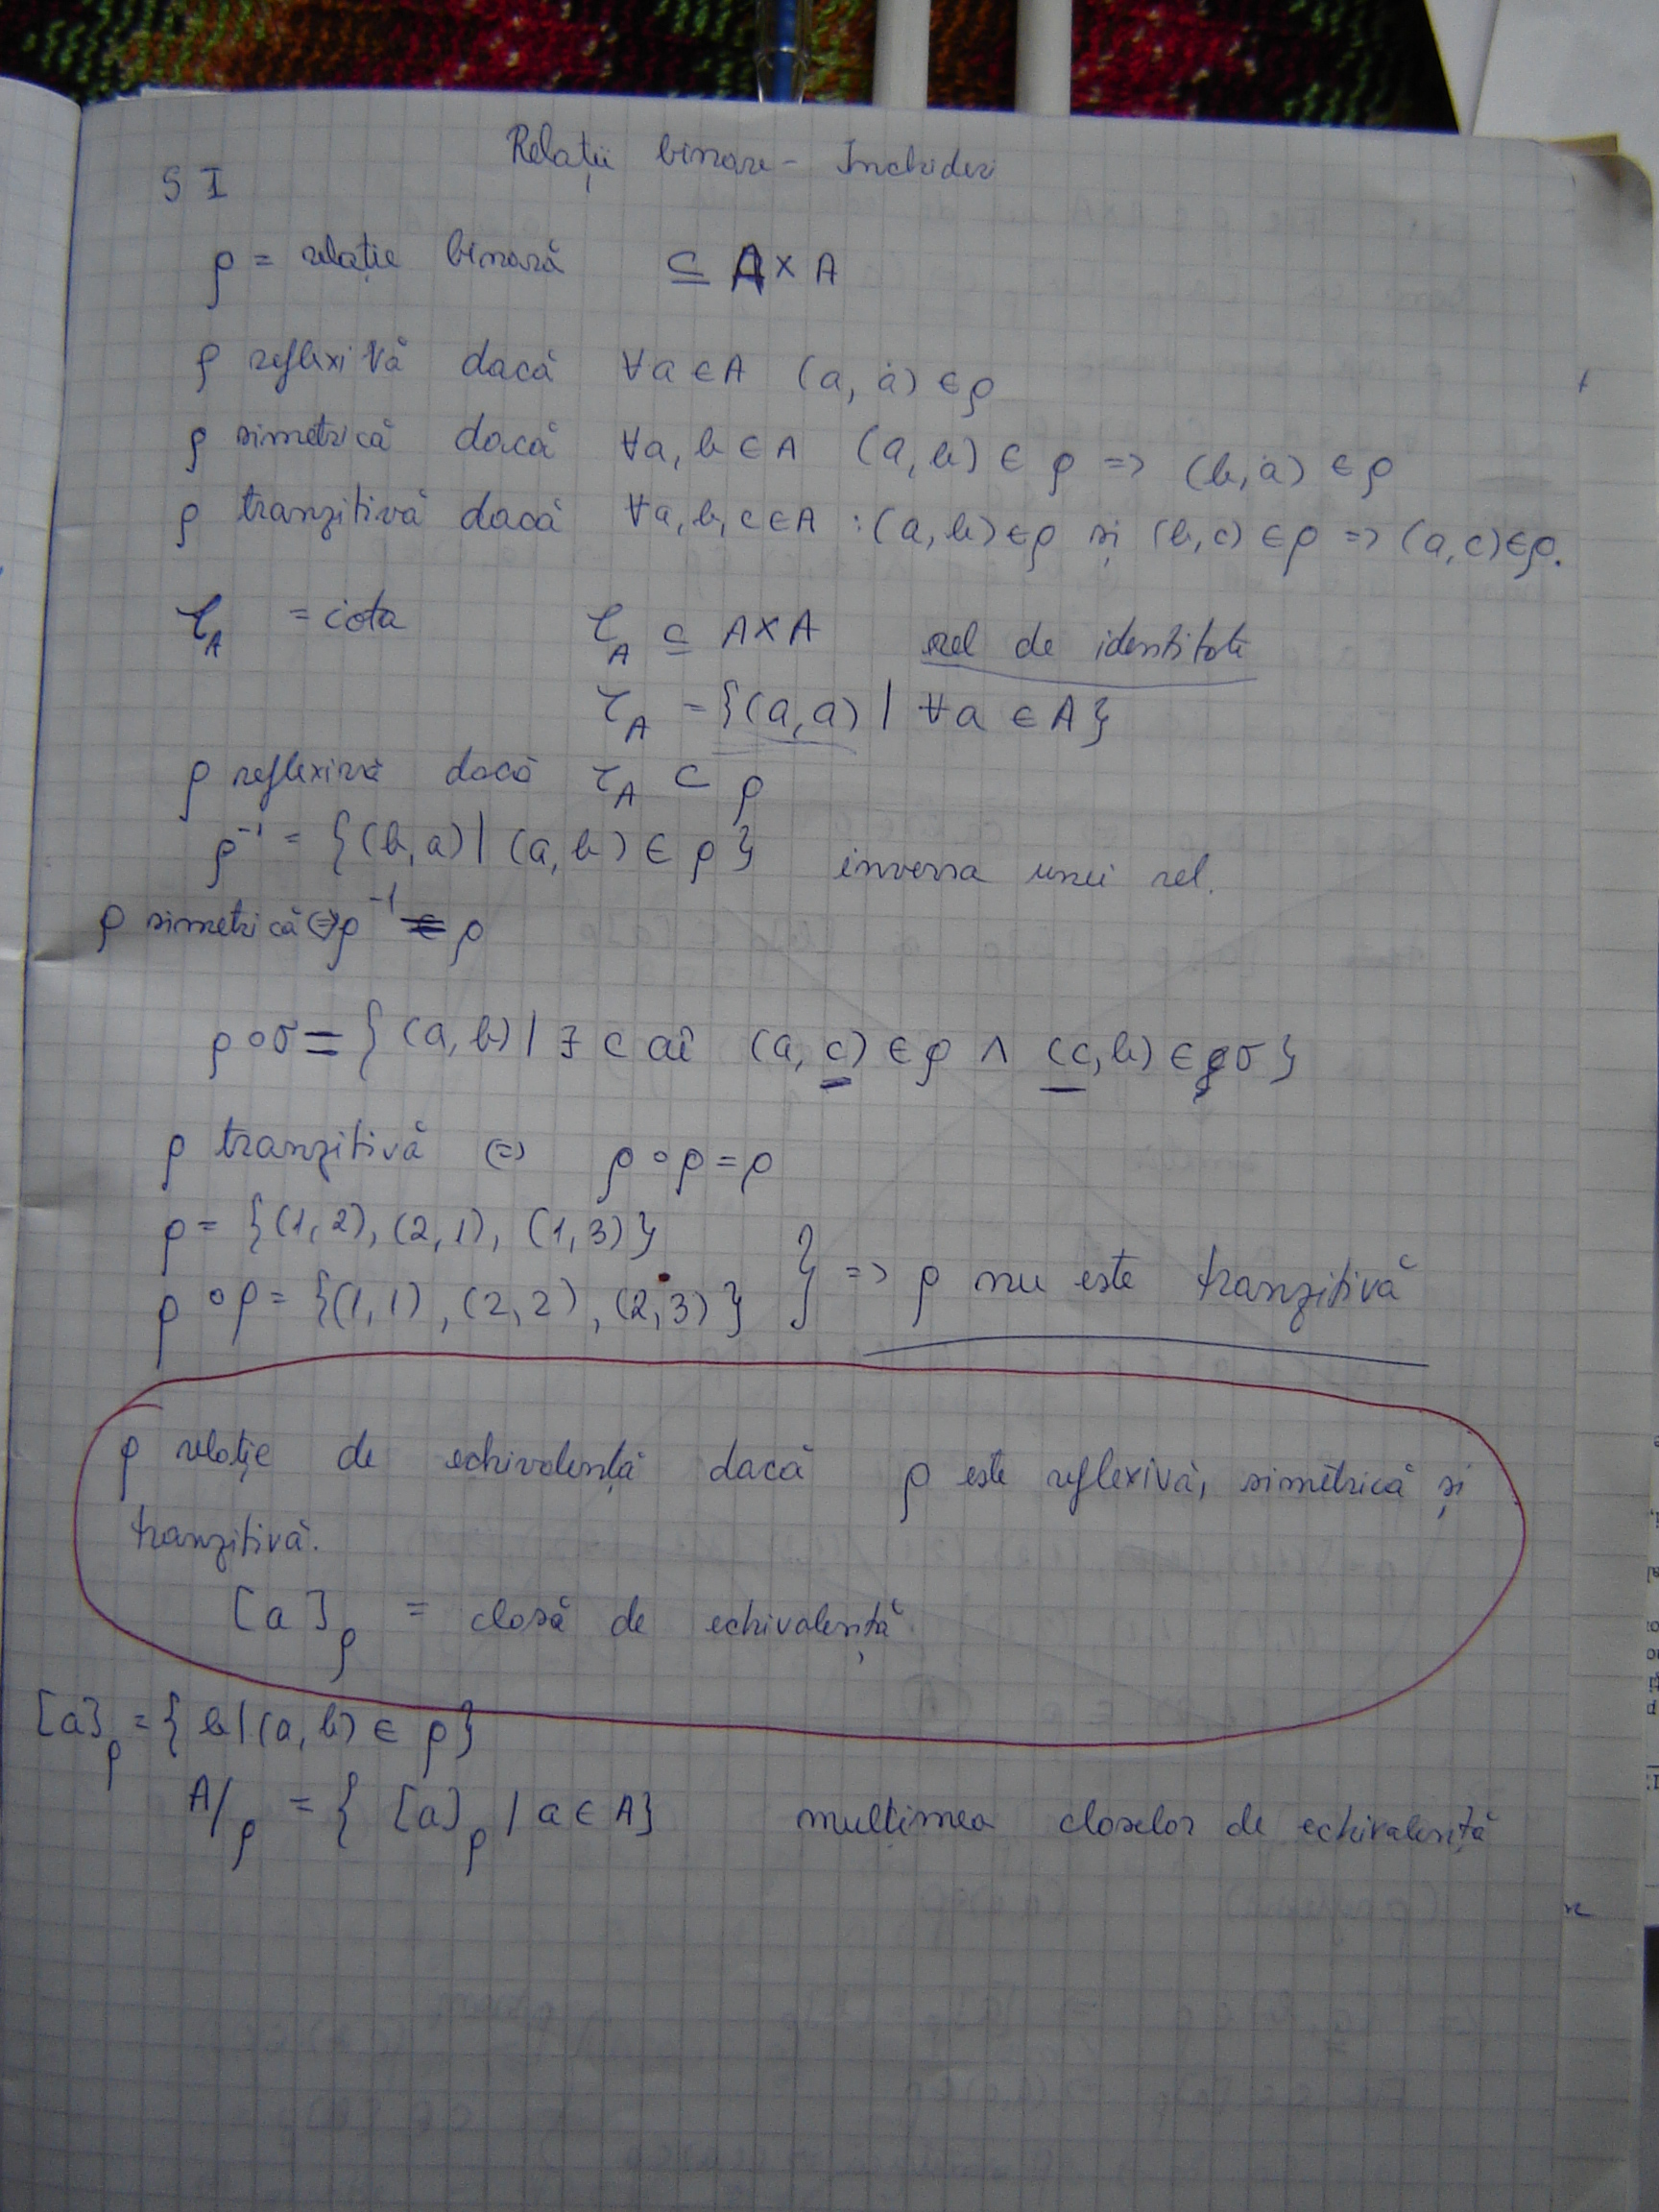 Relații binare - Inchideri
S I
ρ = relație binară ⊆ A × A
ρ reflexivă dacă ∀a∈A (a, a) ∈ρ
ρ simetrică dacă ∀a, b ∈ A (a, b) ∈ ρ => (b, a) ∈ ρ
ρ tranzitivă dacă ∀a, b, c∈A : (a, b)∈ρ și (b, c) ∈ρ => (a, c)∈ρ.
ι_A = iota ι_A ⊆ A×A rel de identitate
ι_A = {(a,a) | ∀a ∈ A}
ρ reflexivă dacă ι_A ⊂ ρ
ρ⁻¹ = {(b,a) | (a, b) ∈ ρ} inversa unei rel.
ρ simetrică <=> ρ⁻¹ = ρ
ρ∘σ = {(a, b) | ∃ c aî (a, c) ∈ρ ∧ (c, b) ∈ σ}
ρ tranzitivă <=> ρ∘ρ = ρ
ρ = {(1,2), (2,1), (1,3)}
ρ∘ρ = {(1,1), (2,2), (2,3)} } => ρ nu este tranzitivă
ρ relație de echivalență dacă ρ este reflexivă, simetrică și
tranzitivă.
[a]_ρ = clasă de echivalență.
[a]_ρ = {b | (a, b) ∈ ρ}
A/ρ = { [a]_ρ | a ∈ A} mulțimea claselor de echivalență